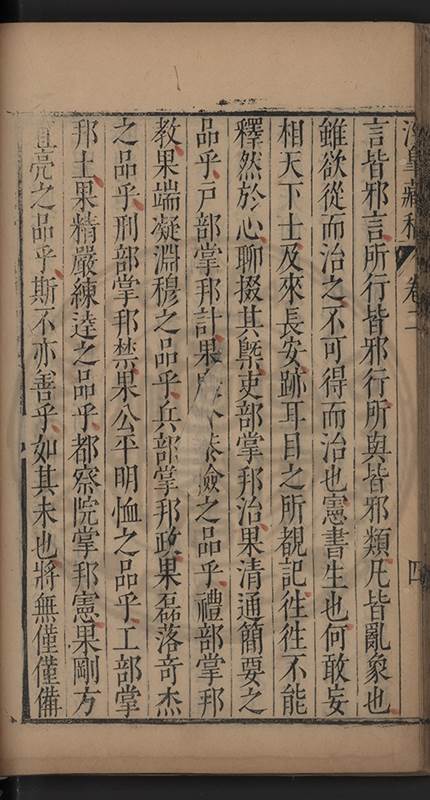 涇皋藏稿 卷二 四
言皆邪言所行皆邪行所與皆邪類凡皆亂象也
雖欲從而治之不可得而治也憲書生也何敢妄
相天下士及來長安跡耳目之所覩記徃徃不能
釋然於心聊掇其槩吏部掌邦治果清通簡要之
品乎戸部掌邦計果之品乎禮部掌邦
教果端凝淵穆之品乎兵部掌邦政果磊落奇杰
之品乎刑部掌邦禁果公平明恤之品乎工部掌
邦土果精嚴練逹之品乎都察院掌邦憲果剛方
直亮之品乎斯不亦善乎如其未也將無僅僅備